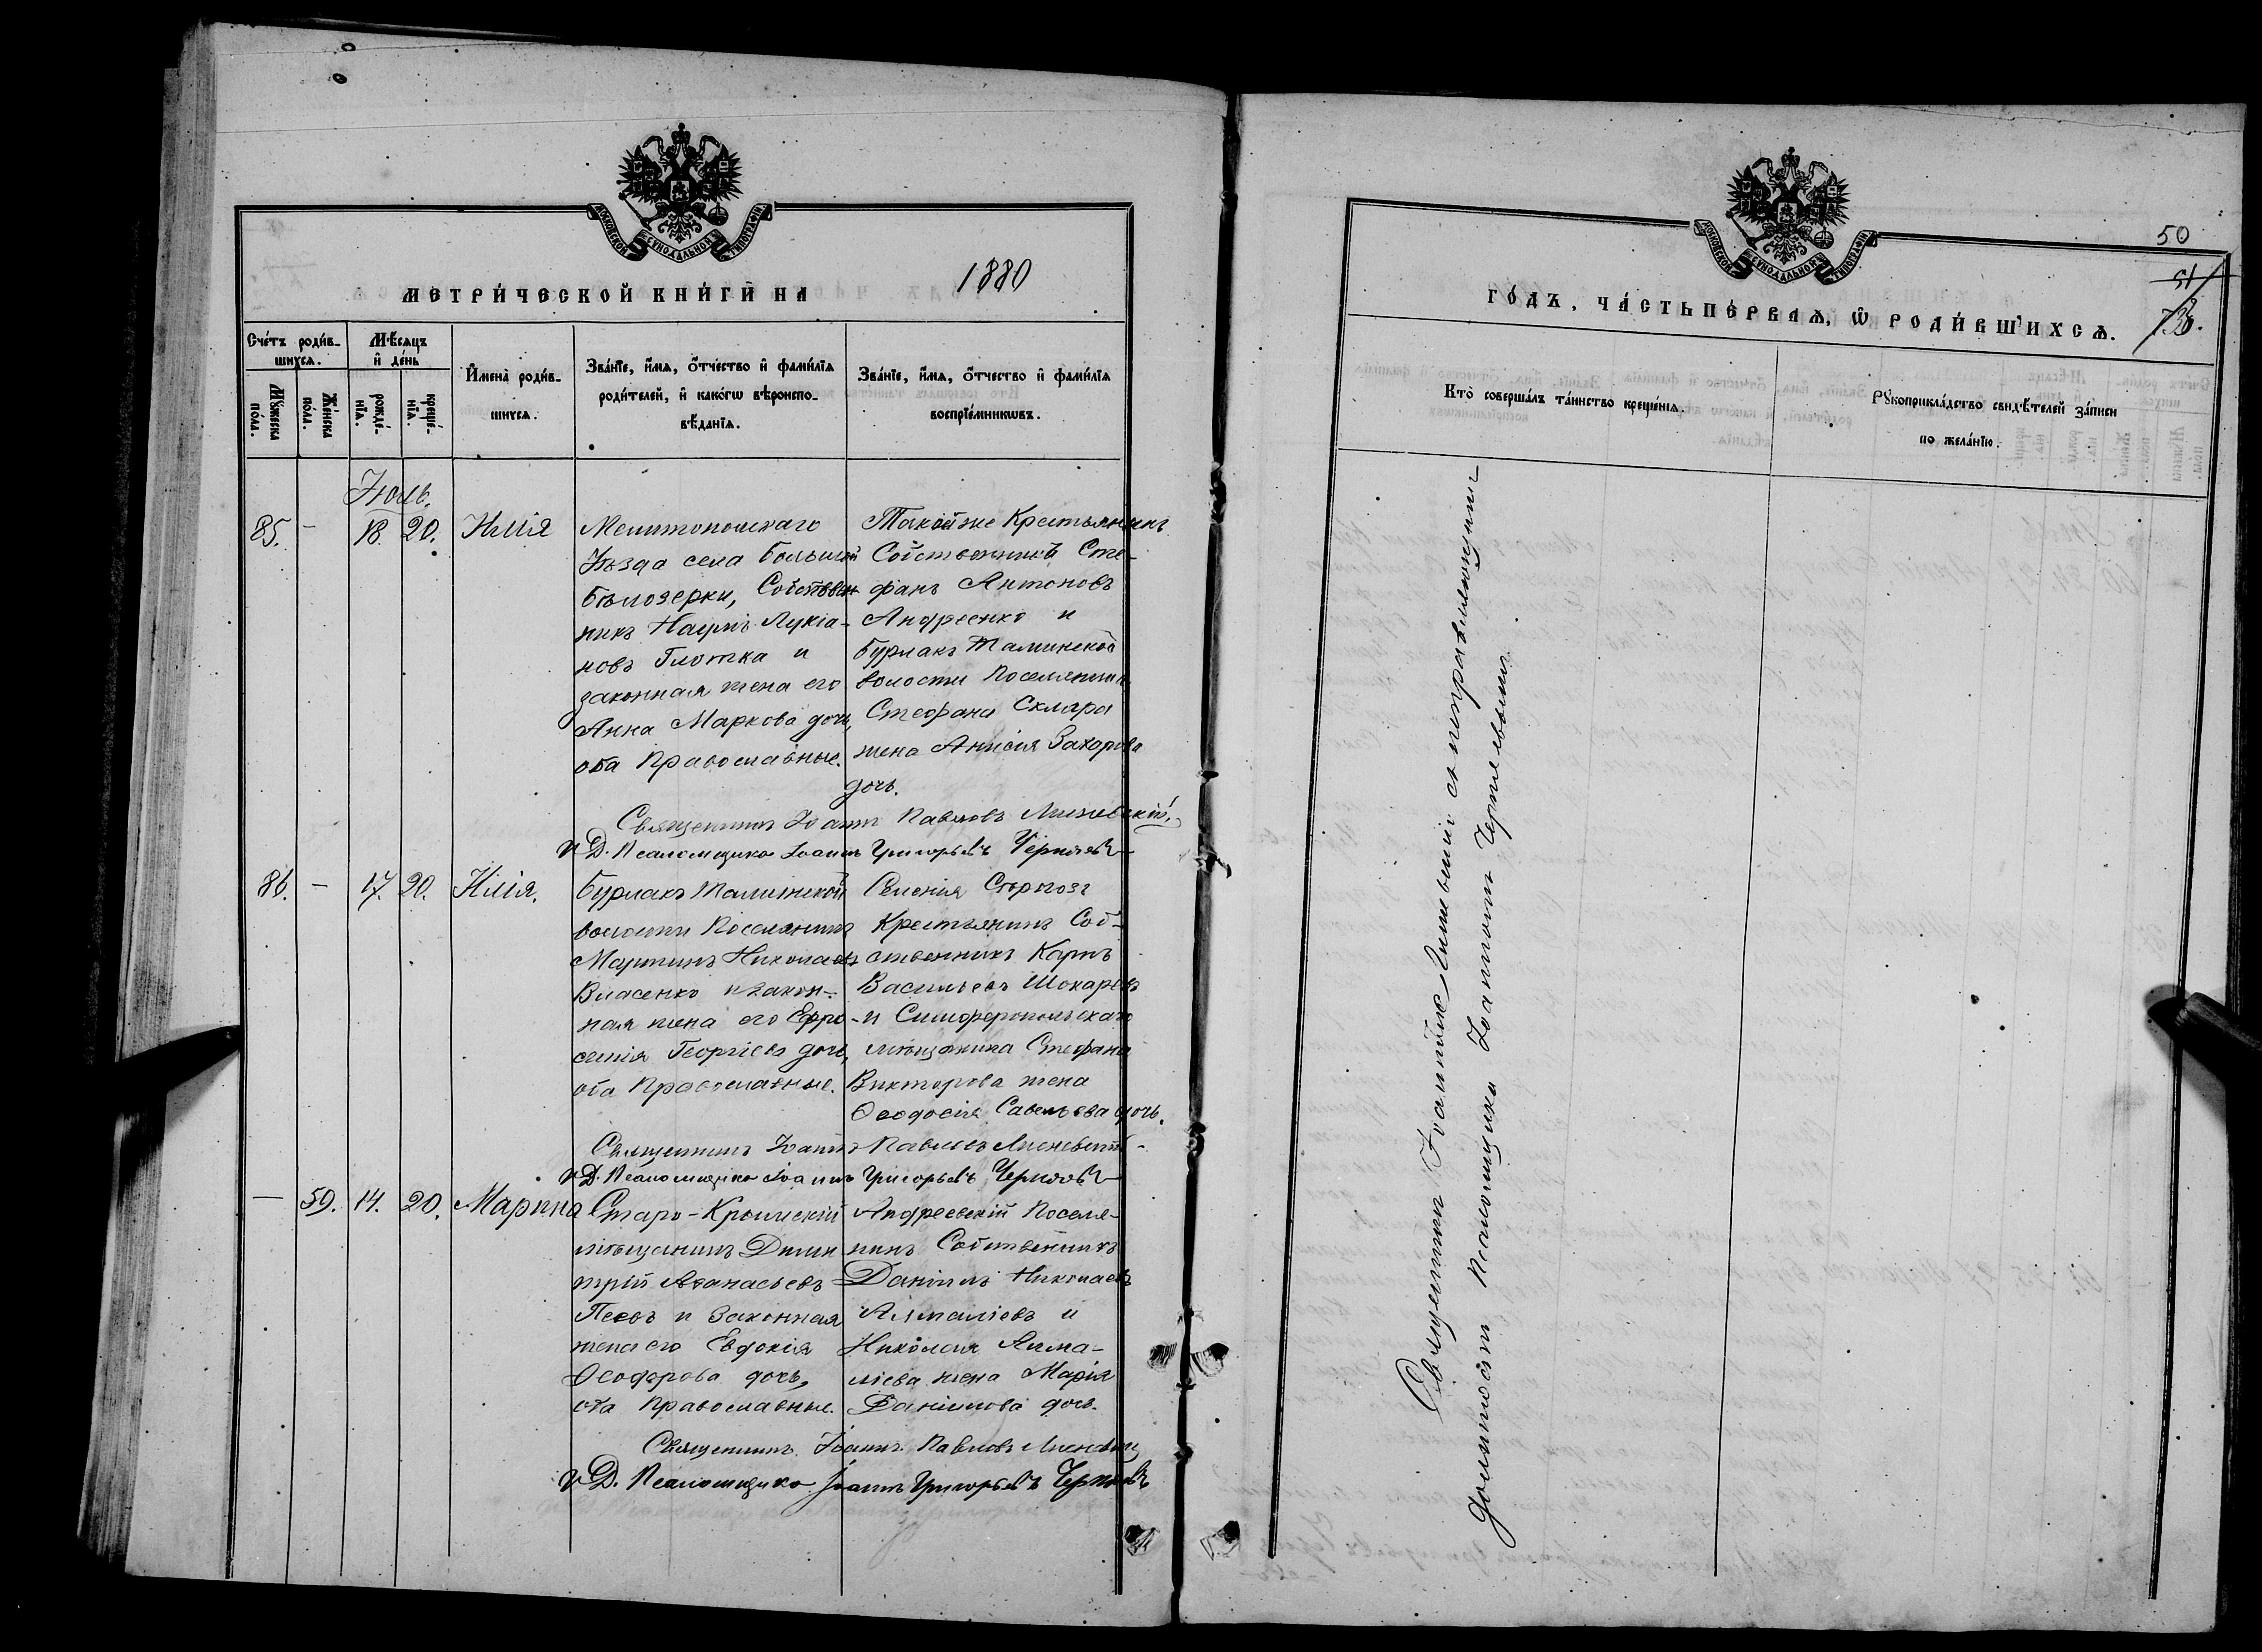 МОСКОВСКОЙ СѴНОДАЛЬНОЙ ТИПОГРАФІИ
МЕТРИ́ЧЕСКОЙ КНИ́ГИ НА 1880
Сче́тъ роди́вшихсѧ.
Мꙋ́жеска по́ла.
Же́нска по́ла.
Мѣ́сѧцъ и҆ де́нь
рожде́нїѧ.
креще́нїѧ.
И҆мена̀ роди́вшихсѧ.
Зва́нїе, и҆́мѧ, ѻ҆́тчество и҆ фами́лїѧ
роди́телей, и҆ како́гѡ вѣроиспо-
вѣ́данїѧ.
Зва́нїе, и҆́мѧ, ѻ҆́тчество и҆ фами́лїѧ
воспрїе́мникѡвъ.
Іюль.
85. - 18. 20. Илія
Мелитопольскаго
Уѣзда села Большой
Бѣлозерки, Собствен-
никъ Наумъ Лукіа-
новъ Глотка и
законная жена его
Анна Маркова дочь,
оба Православные.
Такой же Крестьянинъ
Собственникъ Сте-
фанъ Антоновъ
Андреенко и
Бурлакъ Таминской
волости Поселянина
Стефана Скляра
жена Анисія Захарова
дочь.
Священникъ Іоаннъ Павловъ
И Д. Псаломщика Іоаннъ Григорьевъ
86. - 17. 20. Илія.
Бурлакъ Таминской
волости Поселянинъ
Мартинъ Николаевъ
Власенко и закон-
ная жена его Ефро-
синія Георгіева дочь,
оба Православные.
Селенія
Крестьянинъ Соб-
ственникъ Карпъ
Васильевъ Шокаревъ
и Симферопольскаго
мѣщанина Стефана
Викторова жена
Ѳеодосія Савельева дочь.
Священникъ Іоаннъ Павловъ
И Д. Псаломщика Іоаннъ Григорьевъ
- 59. 14. 20. Марина
Старо-Крымскій
мѣщанинъ Дими-
трій Аѳанасьевъ
и Законная
жена его Евдокія
Ѳеодорова дочь,
оба Православные.
Андреевскій Поселя-
нинъ Собственникъ
Даніилъ Николаевъ
Алмаліевъ и
Николая Алма-
ліева жена Марія
Даніилова дочь.
Священникъ Іоаннъ Павловъ
И Д. Псаломщика Іоаннъ Григорьевъ
МОСКОВСКОЙ СѴНОДАЛЬНОЙ ТИПОГРАФІИ
50
51
ГО́ДЪ, ЧА́СТЬ ПЕ́РВАѦ, Ѡ҆ РОДИ́ВШИХСѦ.
Кто̀ соверша́лъ та́инство креще́нїѧ.
Рꙋкоприкла́дство свидѣ́телей за́писи
по жела́нїю.
Священникъ Іоаннъ съ исправляющимъ
должность Псаломщика Іоанномъ